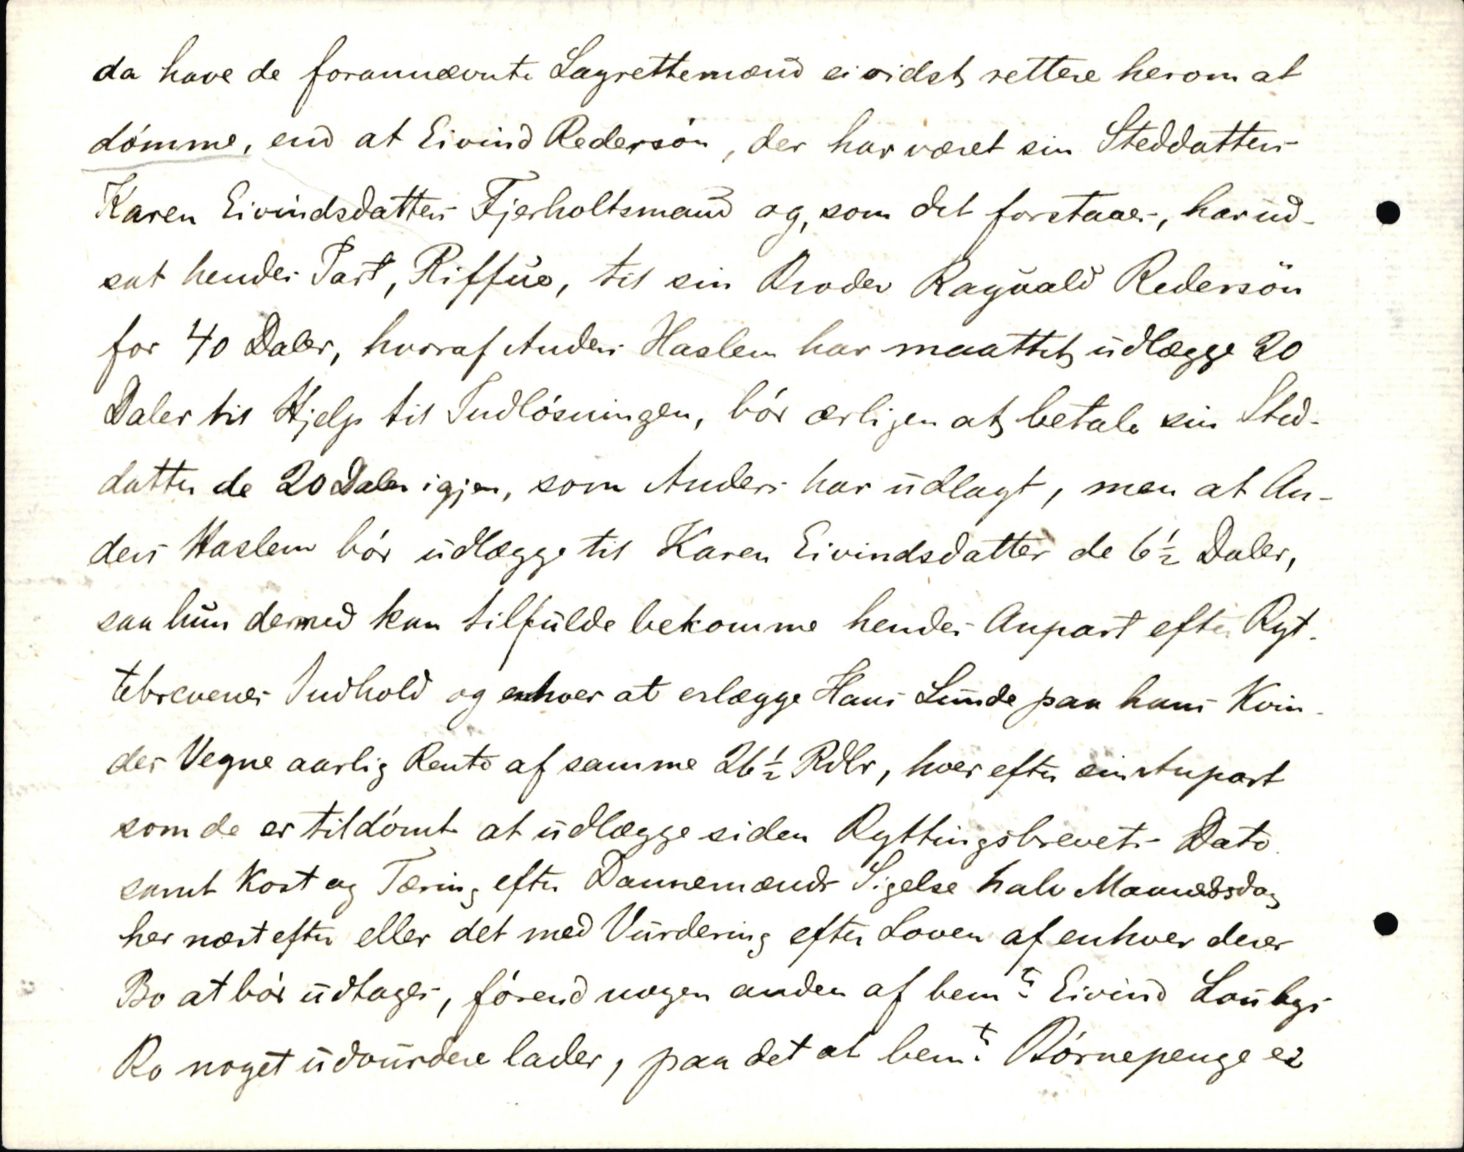 da have de forannævnte Lagrettemænd ei vidst rettere herom at
dömme, end at Eivind Redersön, der har været sin Steddatters
Karen Eivindsdatters Fjerholtsmand og, som det forstaaes, har ud-
sat hendes Part, Riffue, til sin Broder Raguald Redersön
for 40 Daler, hvoraf Anders Haslem har maattet udlægge 20
Daler til Hjelp til Indlösningen, bör ærligen at betale sin Sted-
datter de 20 Daler igjen, som Anders har udlagt, men at An-
ders Haslem bör udlægge til Karen Eivindsdatter de 6½ Daler,
saa hun dermed kan tilfulde bekomme hendes Anpart efter Ryt-
tebrevenes Indhold og enhver at erlægge Hans Lunde paa hans Kvin-
des Vegne aarlig Rente af samme 26½ Rdlr, hver efter sin Anpart
som de er tildömt at udlægge siden Ryttingsbrevets Dato
samt Kost og Tæring efter Dannemænds Sigelse halv Maanedsdag
her næst efter eller det med Vurdering efter Loven af enhver deres
Bo at bör udtages, förend nogen anden af bemte Eivind Loubys
Bo noget udvurdere lader, paa det at bemte Börnepenge ei